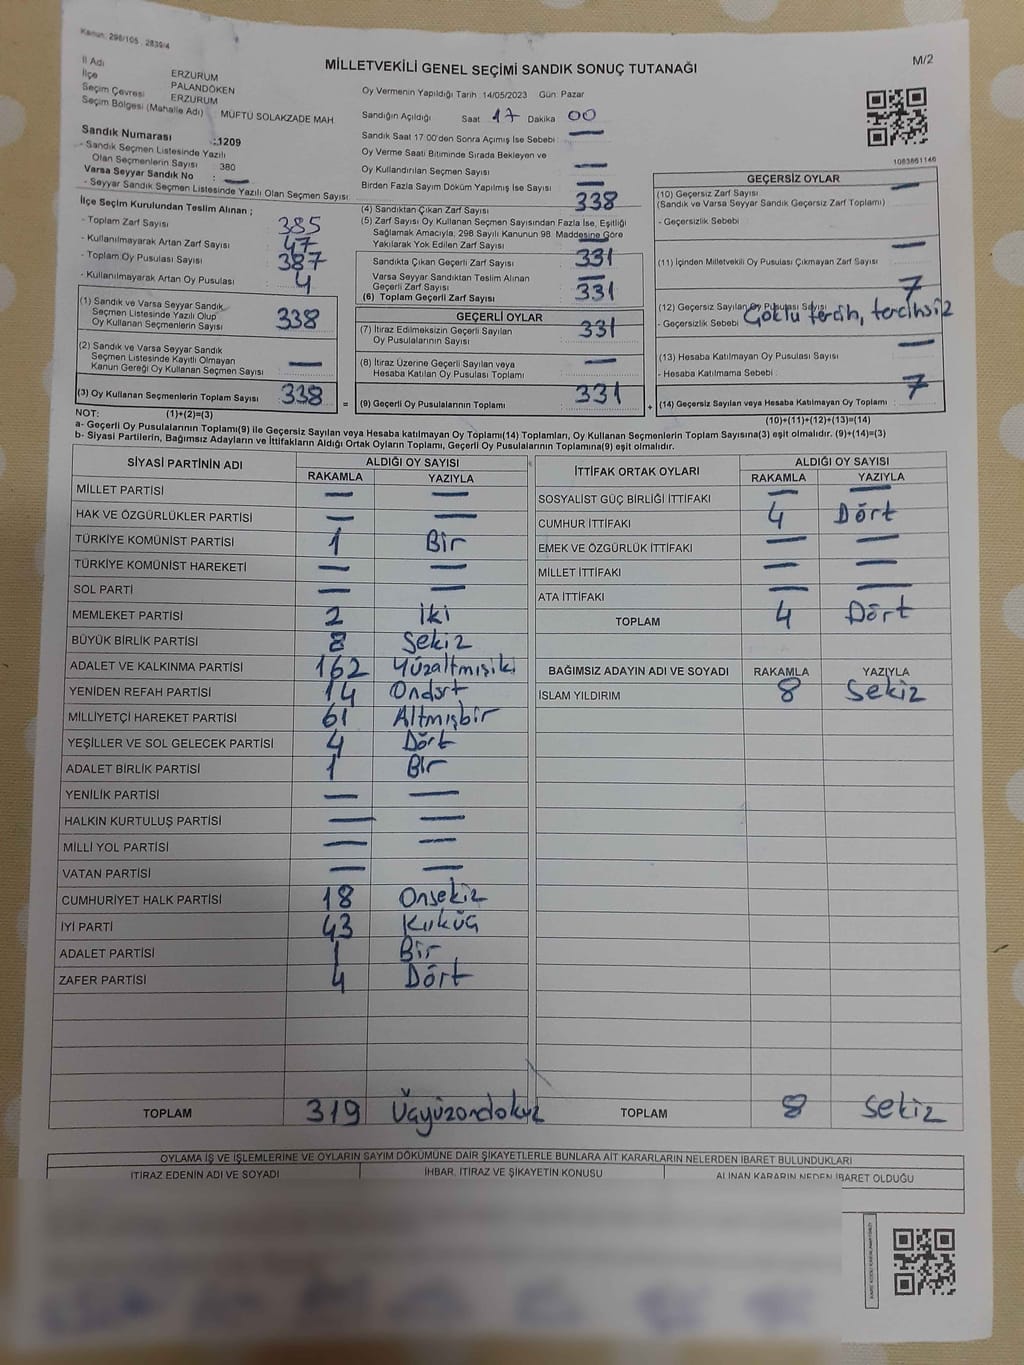 Kanun: 298/105 , 2839/4
MİLLETVEKİLİ GENEL SEÇİMİ SANDIK SONUÇ TUTANAĞI
M/2
İl Adı ERZURUM
İlçe PALANDÖKEN
Seçim Çevresi ERZURUM
Seçim Bölgesi (Mahalle Adı) : MÜFTÜ SOLAKZADE MAH
Sandık Numarası : 1209
- Sandık Seçmen Listesinde Yazılı
Olan Seçmenlerin Sayısı : 380
Varsa Seyyar Sandık No : —
- Seyyar Sandık Seçmen Listesinde Yazılı Olan Seçmen Sayısı
İlçe Seçim Kurulundan Teslim Alınan ;
- Toplam Zarf Sayısı : 385
- Kullanılmayarak Artan Zarf Sayısı : 47
- Toplam Oy Pusulası Sayısı : 387
- Kullanılmayarak Artan Oy Pusulası : 4
(1) Sandık ve Varsa Seyyar Sandık
Seçmen Listesinde Yazılı Olup
Oy Kullanan Seçmenlerin Sayısı 338
(2) Sandık ve Varsa Seyyar Sandık
Seçmen Listesinde Kayıtlı Olmayan
Kanun Gereği Oy Kullanan Seçmen Sayısı —
(3) Oy Kullanan Seçmenlerin Toplam Sayısı 338
Oy Vermenin Yapıldığı Tarih 14/05/2023 Gün: Pazar
Sandığın Açıldığı Saat 17 Dakika 00
Sandık Saat 17:00'den Sonra Açımış İse Sebebi : —
Oy Verme Saati Bitiminde Sırada Bekleyen ve
Oy Kullandırılan Seçmen Sayısı —
Birden Fazla Sayım Döküm Yapılmış İse Sayısı —
(4) Sandıktan Çıkan Zarf Sayısı 338
(5) Zarf Sayısı Oy Kullanan Seçmen Sayısından Fazla İse, Eşitliği
Sağlamak Amacıyla, 298 Sayılı Kanunun 98. Maddesine Göre
Yakılarak Yok Edilen Zarf Sayısı —
Sandıkta Çıkan Geçerli Zarf Sayısı 331
Varsa Seyyar Sandıktan Teslim Alınan
Geçerli Zarf Sayısı —
(6) Toplam Geçerli Zarf Sayısı 331
GEÇERLİ OYLAR
(7) İtiraz Edilmeksizin Geçerli Sayılan
Oy Pusulalarının Sayısı 331
(8) İtiraz Üzerine Geçerli Sayılan veya
Hesaba Katılan Oy Pusulası Toplamı —
= (9) Geçerli Oy Pusulalarının Toplamı 331 +
1083861146
GEÇERSİZ OYLAR
(10) Geçersiz Zarf Sayısı —
(Sandık ve Varsa Seyyar Sandık Geçersiz Zarf Toplamı)
- Geçersizlik Sebebi :
(11) İçinden Milletvekili Oy Pusulası Çıkmayan Zarf Sayısı —
(12) Geçersiz Sayılan Oy Pusulası Sayısı 7
- Geçersizlik Sebebi Çoklu tercih, tercihsiz
(13) Hesaba Katılmayan Oy Pusulası Sayısı —
- Hesaba Katılmama Sebebi :
(14) Geçersiz Sayılan veya Hesaba Katılmayan Oy Toplamı 7
NOT: (1)+(2)=(3) (10)+(11)+(12)+(13)=(14)
a- Geçerli Oy Pusulalarının Toplamı(9) ile Geçersiz Sayılan veya Hesaba katılmayan Oy Toplamı(14) Toplamları, Oy Kullanan Seçmenlerin Toplam Sayısına(3) eşit olmalıdır. (9)+(14)=(3)
b- Siyasi Partilerin, Bağımsız Adayların ve İttifakların Aldığı Ortak Oyların Toplamı, Geçerli Oy Pusulalarının Toplamına(9) eşit olmalıdır.
SİYASİ PARTİNİN ADI ALDIĞI OY SAYISI
RAKAMLA YAZIYLA
MİLLET PARTİSİ — —
HAK VE ÖZGÜRLÜKLER PARTİSİ — —
TÜRKİYE KOMÜNİST PARTİSİ 1 Bir
TÜRKİYE KOMÜNİST HAREKETİ — —
SOL PARTİ — —
MEMLEKET PARTİSİ 2 İki
BÜYÜK BİRLİK PARTİSİ 8 Sekiz
ADALET VE KALKINMA PARTİSİ 162 Yüzaltmışiki
YENİDEN REFAH PARTİSİ 14 Ondört
MİLLİYETÇİ HAREKET PARTİSİ 61 Altmışbir
YEŞİLLER VE SOL GELECEK PARTİSİ 4 Dört
ADALET BİRLİK PARTİSİ 1 Bir
YENİLİK PARTİSİ — —
HALKIN KURTULUŞ PARTİSİ — —
MİLLİ YOL PARTİSİ — —
VATAN PARTİSİ — —
CUMHURİYET HALK PARTİSİ 18 Onsekiz
İYİ PARTİ 43 Kırküç
ADALET PARTİSİ 1 Bir
ZAFER PARTİSİ 4 Dört
TOPLAM 319 Üçyüzondokuz
İTTİFAK ORTAK OYLARI ALDIĞI OY SAYISI
RAKAMLA YAZIYLA
SOSYALİST GÜÇ BİRLİĞİ İTTİFAKI — —
CUMHUR İTTİFAKI 4 Dört
EMEK VE ÖZGÜRLÜK İTTİFAKI — —
MİLLET İTTİFAKI — —
ATA İTTİFAKI — —
TOPLAM 4 Dört
BAĞIMSIZ ADAYIN ADI VE SOYADI RAKAMLA YAZIYLA
İSLAM YILDIRIM 8 Sekiz
TOPLAM 8 Sekiz
OYLAMA İŞ VE İŞLEMLERİNE VE OYLARIN SAYIM DÖKÜMÜNE DAİR ŞİKAYETLERLE BUNLARA AİT KARARLARIN NELERDEN İBARET BULUNDUKLARI
İTİRAZ EDENİN ADI VE SOYADI İHBAR, İTİRAZ VE ŞİKAYETİN KONUSU ALINAN KARARIN NEDEN İBARET OLDUĞU